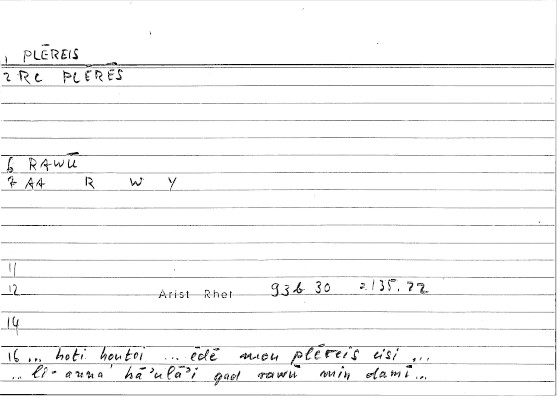 1 PLĒREIS
2 Rc PLĒRĒS
6 RAWŪ
7 AA R W Y
11
12 Arist Rhet 93b 30 2135.22
14
16 ... hoti houtoi ... ēdē mou plēreis eisi ...
... li-anna hā'ulā'i qad rawū min damī ...